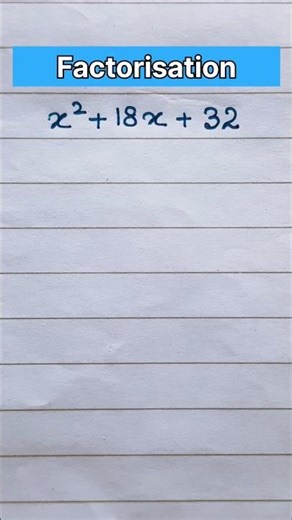 Factorisation
x² + 18x + 32